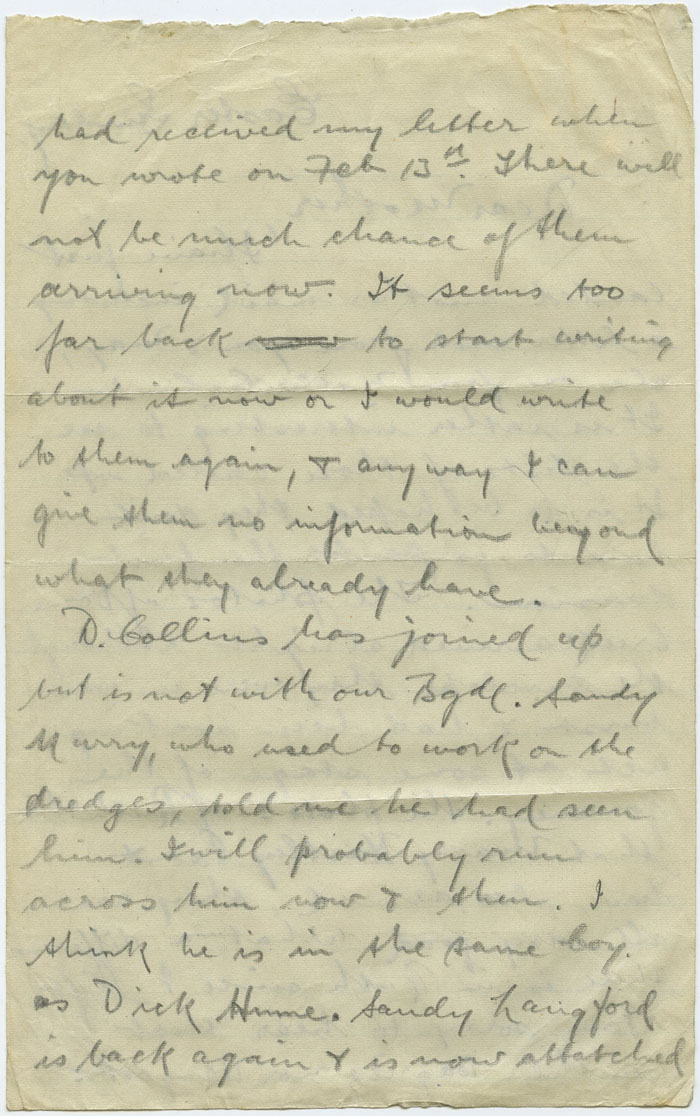 had received my letter when
you wrote on Feb 13th. There will
not be much chance of them
arriving now. It seems too
far back now to start writing
about it now or I would write
to them again, & anyway I can
give them no information beyond
what they already have.
D. Collins has joined up
but is not with our Bgde. Sandy
Murry, who used to work on the
dredges, told me he had seen
him. I will probably run
across him now & then. I
think he is in the same Coy.
as Dick Hume. Sandy Langford
is back again & is now attatched